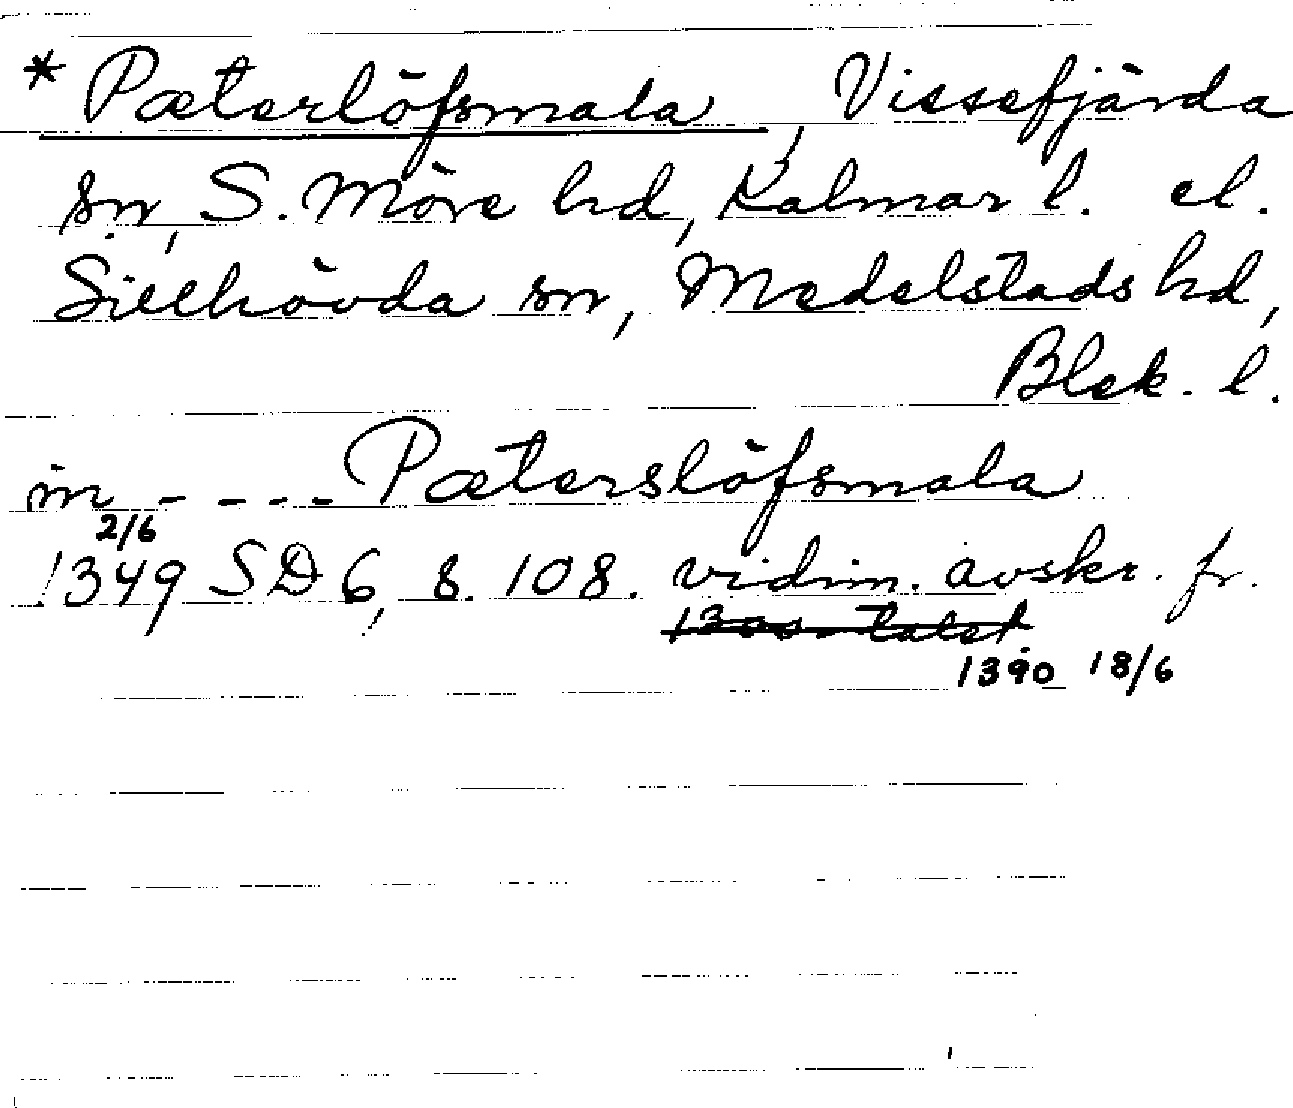 * Pæterlöfsmala, Vissefjärda
sn, S. Möre hd, Kalmar l. el.
Sillhövda sn, Medelstads hd,
Blek. l.
in - - - - Pæterslöfsmala
2/6
1349 SD 6, s. 108. vidim. avskr. fr.
1300-talet
1390 18/6